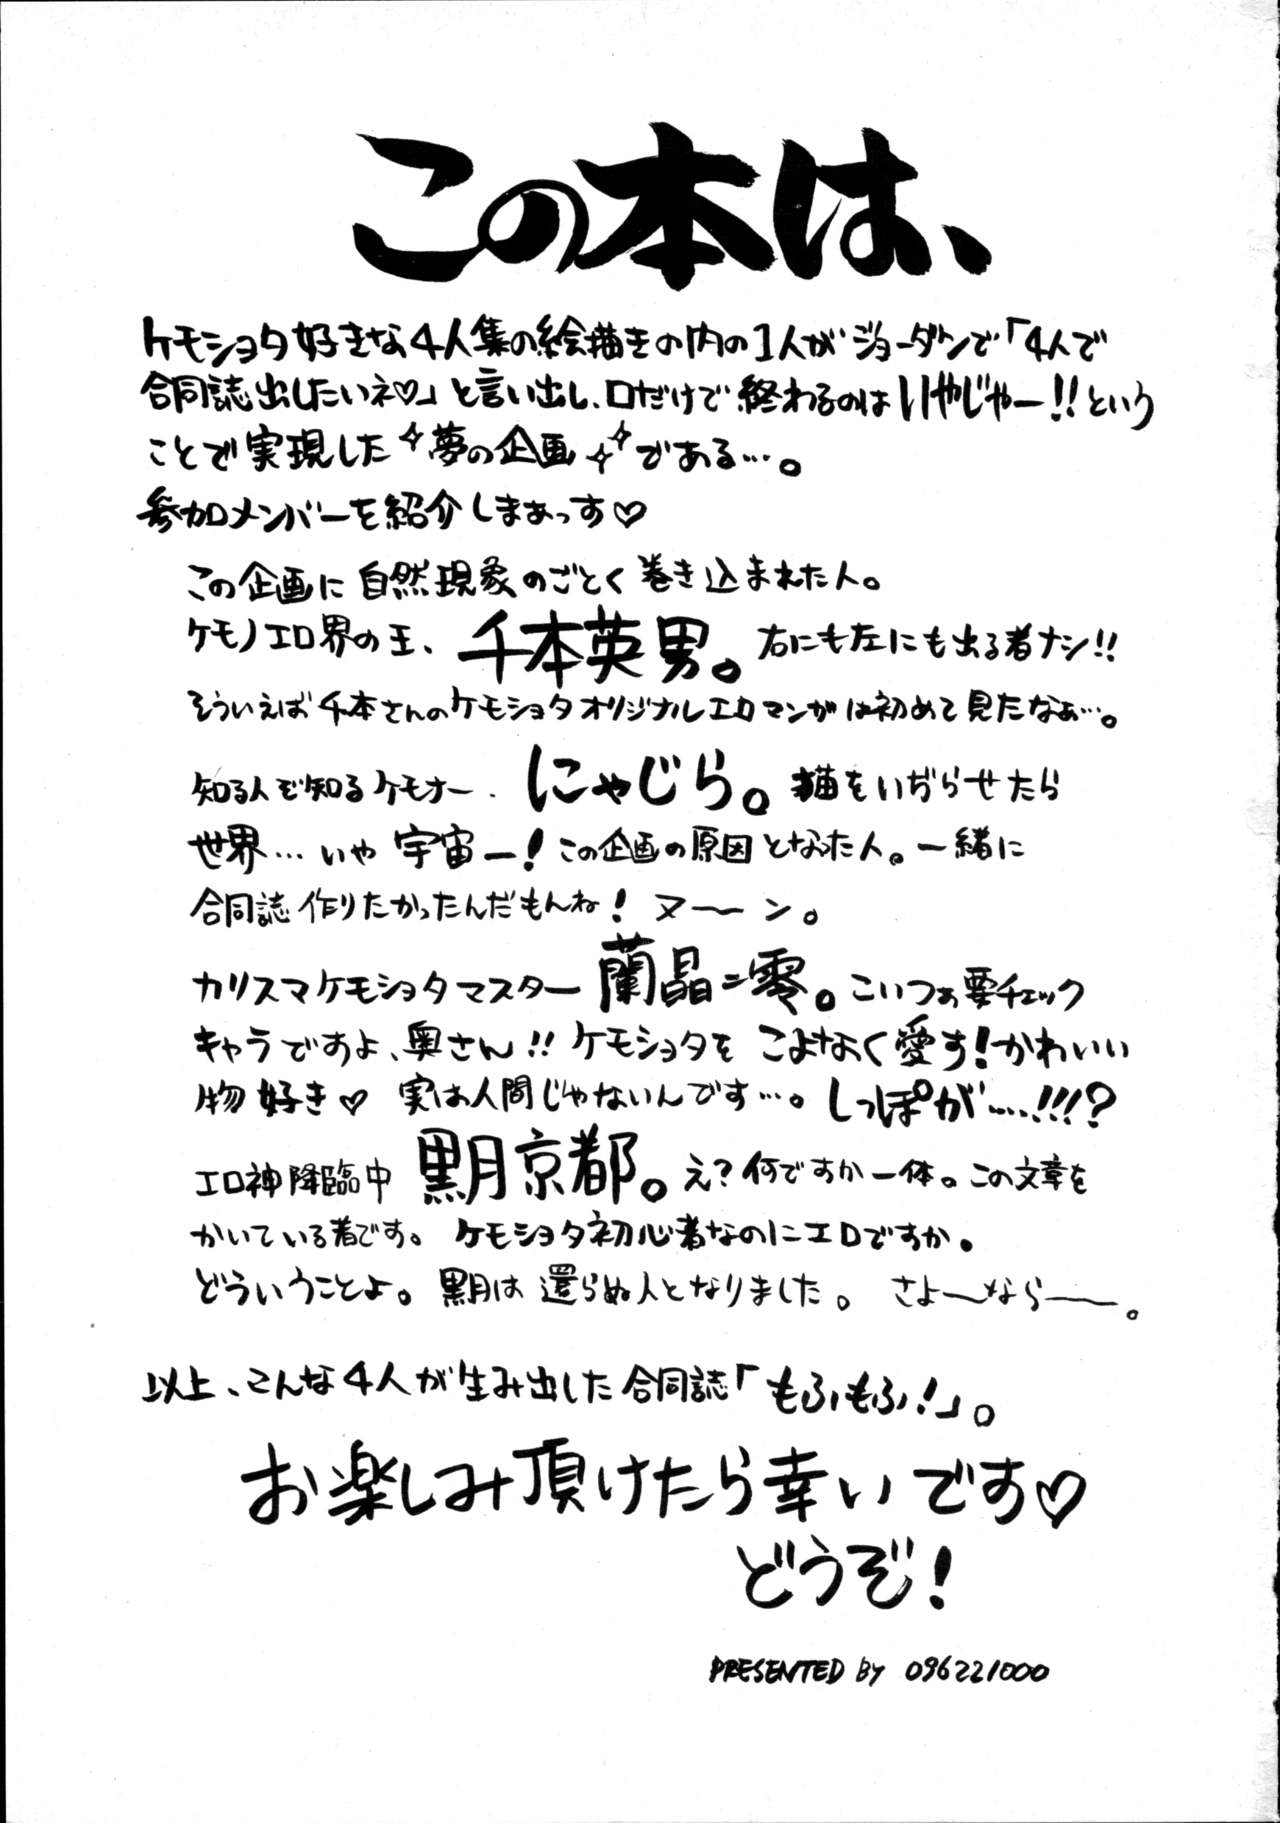 この本は、
ケモショタ好きな4人集の絵描きの内の1人がジョーダンで「4人で
合同誌出したいネ♡」と言い出し、口だけで終わるのはいやじゃー!!という
ことで実現した夢の企画である…。
参加メンバーを紹介しまぁっす♡
この企画に自然現象のごとく巻き込まれた人。
ケモノエロ界の王、千本英男。右にも左にも出る者ナシ!!
そういえば千本さんのケモショタオリジナルエロマンガは初めて見たなぁ…。
知る人ぞ知るケモナー、にゃじら。猫をいぢらせたら
世界…いや宇宙一!この企画の原因となった人。一緒に
合同誌作りたかったんだもんね!ヌ〜〜ン。
カリスマケモショタマスター蘭晶=零。こいつぁ要チェック
キャラですよ、奥さん!!ケモショタをこよなく愛す!かわいい
物好き♡実は人間じゃないんです…。しっぽが……!!!?
エロ神降臨中黒月京都。え?何ですか一体。この文章を
かいている者です。ケモショタ初心者なのにエロですか。
どういうことよ。黒月は還らぬ人となりました。さよ〜なら〜。
以上、こんな4人が生み出した合同誌「もふもふ!」。
お楽しみ頂けたら幸いです♡
どうぞ!
PRESENTED BY 096221000